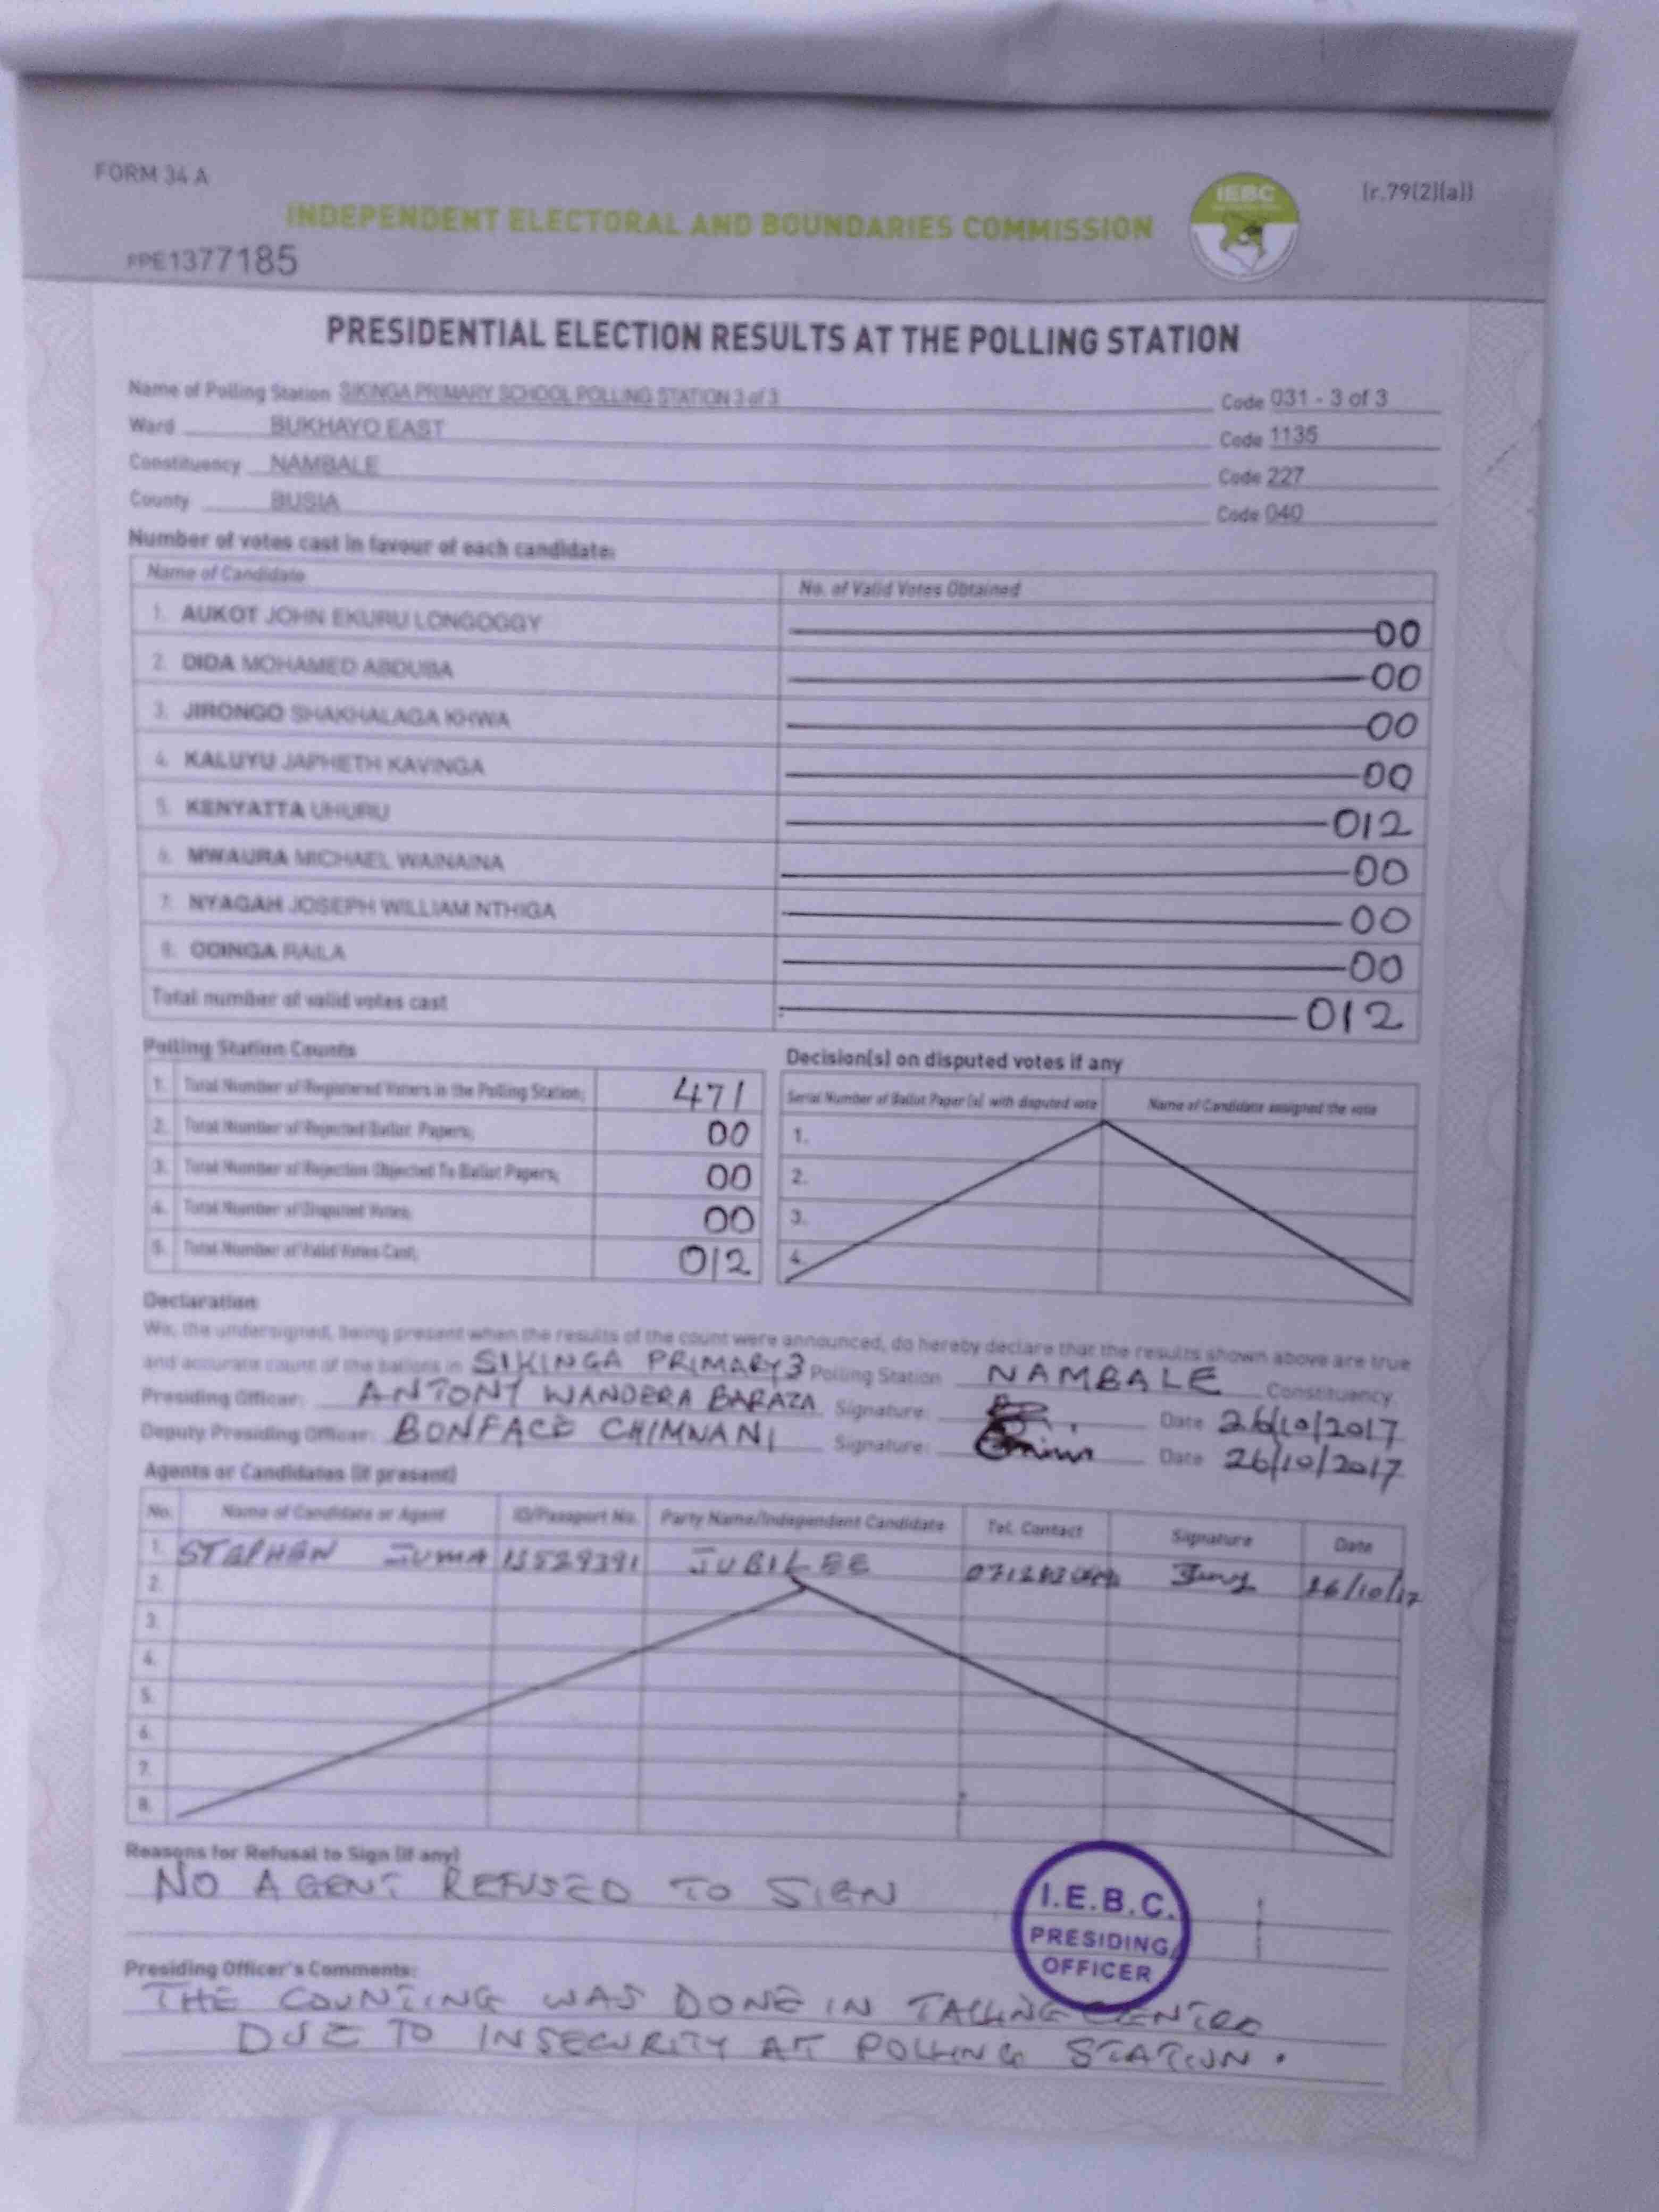 FORM 34 A
IEBC
(r.79(2)(a))
INDEPENDENT ELECTORAL AND BOUNDARIES COMMISSION
PPE1377185
PRESIDENTIAL ELECTION RESULTS AT THE POLLING STATION
Name of Polling Station SIKINGA PRIMARY SCHOOL POLLING STATION 3 of 3 Code 031 - 3 of 3
Ward BUKHAYO EAST Code 1135
Constituency NAMBALE Code 227
County BUSIA Code 040
Number of votes cast in favour of each candidate:
Name of Candidate No. of Valid Votes Obtained
1. AUKOT JOHN EKURU LONGOGGY 00
2. DIDA MOHAMED ABDUBA 00
3. JIRONGO SHAKHALAGA KHWA 00
4. KALUYU JAPHETH KAVINGA 00
5. KENYATTA UHURU 012
6. MWAURA MICHAEL WAINAINA 00
7. NYAGAH JOSEPH WILLIAM NTHIGA 00
8. ODINGA RAILA 00
Total number of valid votes cast 012
Polling Station Counts
1. Total Number of Registered Voters in the Polling Station; 471
2. Total Number of Rejected Ballot Papers; 00
3. Total Number of Rejection Objected To Ballot Papers; 00
4. Total Number of Disputed Votes; 00
5. Total Number of Valid Votes Cast; 012
Decision(s) on disputed votes if any
Serial Number of Ballot Paper (s) with disputed vote Name of Candidate assigned the vote
1.
2.
3.
4.
Declaration
We, the undersigned, being present when the results of the count were announced, do hereby declare that the results shown above are true
and accurate count of the ballots in SIKINGA PRIMARY 3 Polling Station NAMBALE Constituency
Presiding Officer: ANTONY WANDERA BARAZA Signature: Date 26/10/2017
Deputy Presiding Officer: BONFACE CHIMWANI Signature: Date 26/10/2017
Agents or Candidates (if present)
No. Name of Candidate or Agent ID/Passport No. Party Name/Independent Candidate Tel. Contact Signature Date
1. STEPHEN JUMA 13529391 JUBILEE 26/10/17
2.
3.
4.
5.
6.
7.
8.
Reasons for Refusal to Sign (if any)
NO AGENT REFUSED TO SIGN
I.E.B.C.
PRESIDING
OFFICER
Presiding Officer's Comments:
THE COUNTING WAS DONE IN TALLING CENTRE
DUE TO INSECURITY AT POLLING STATION.